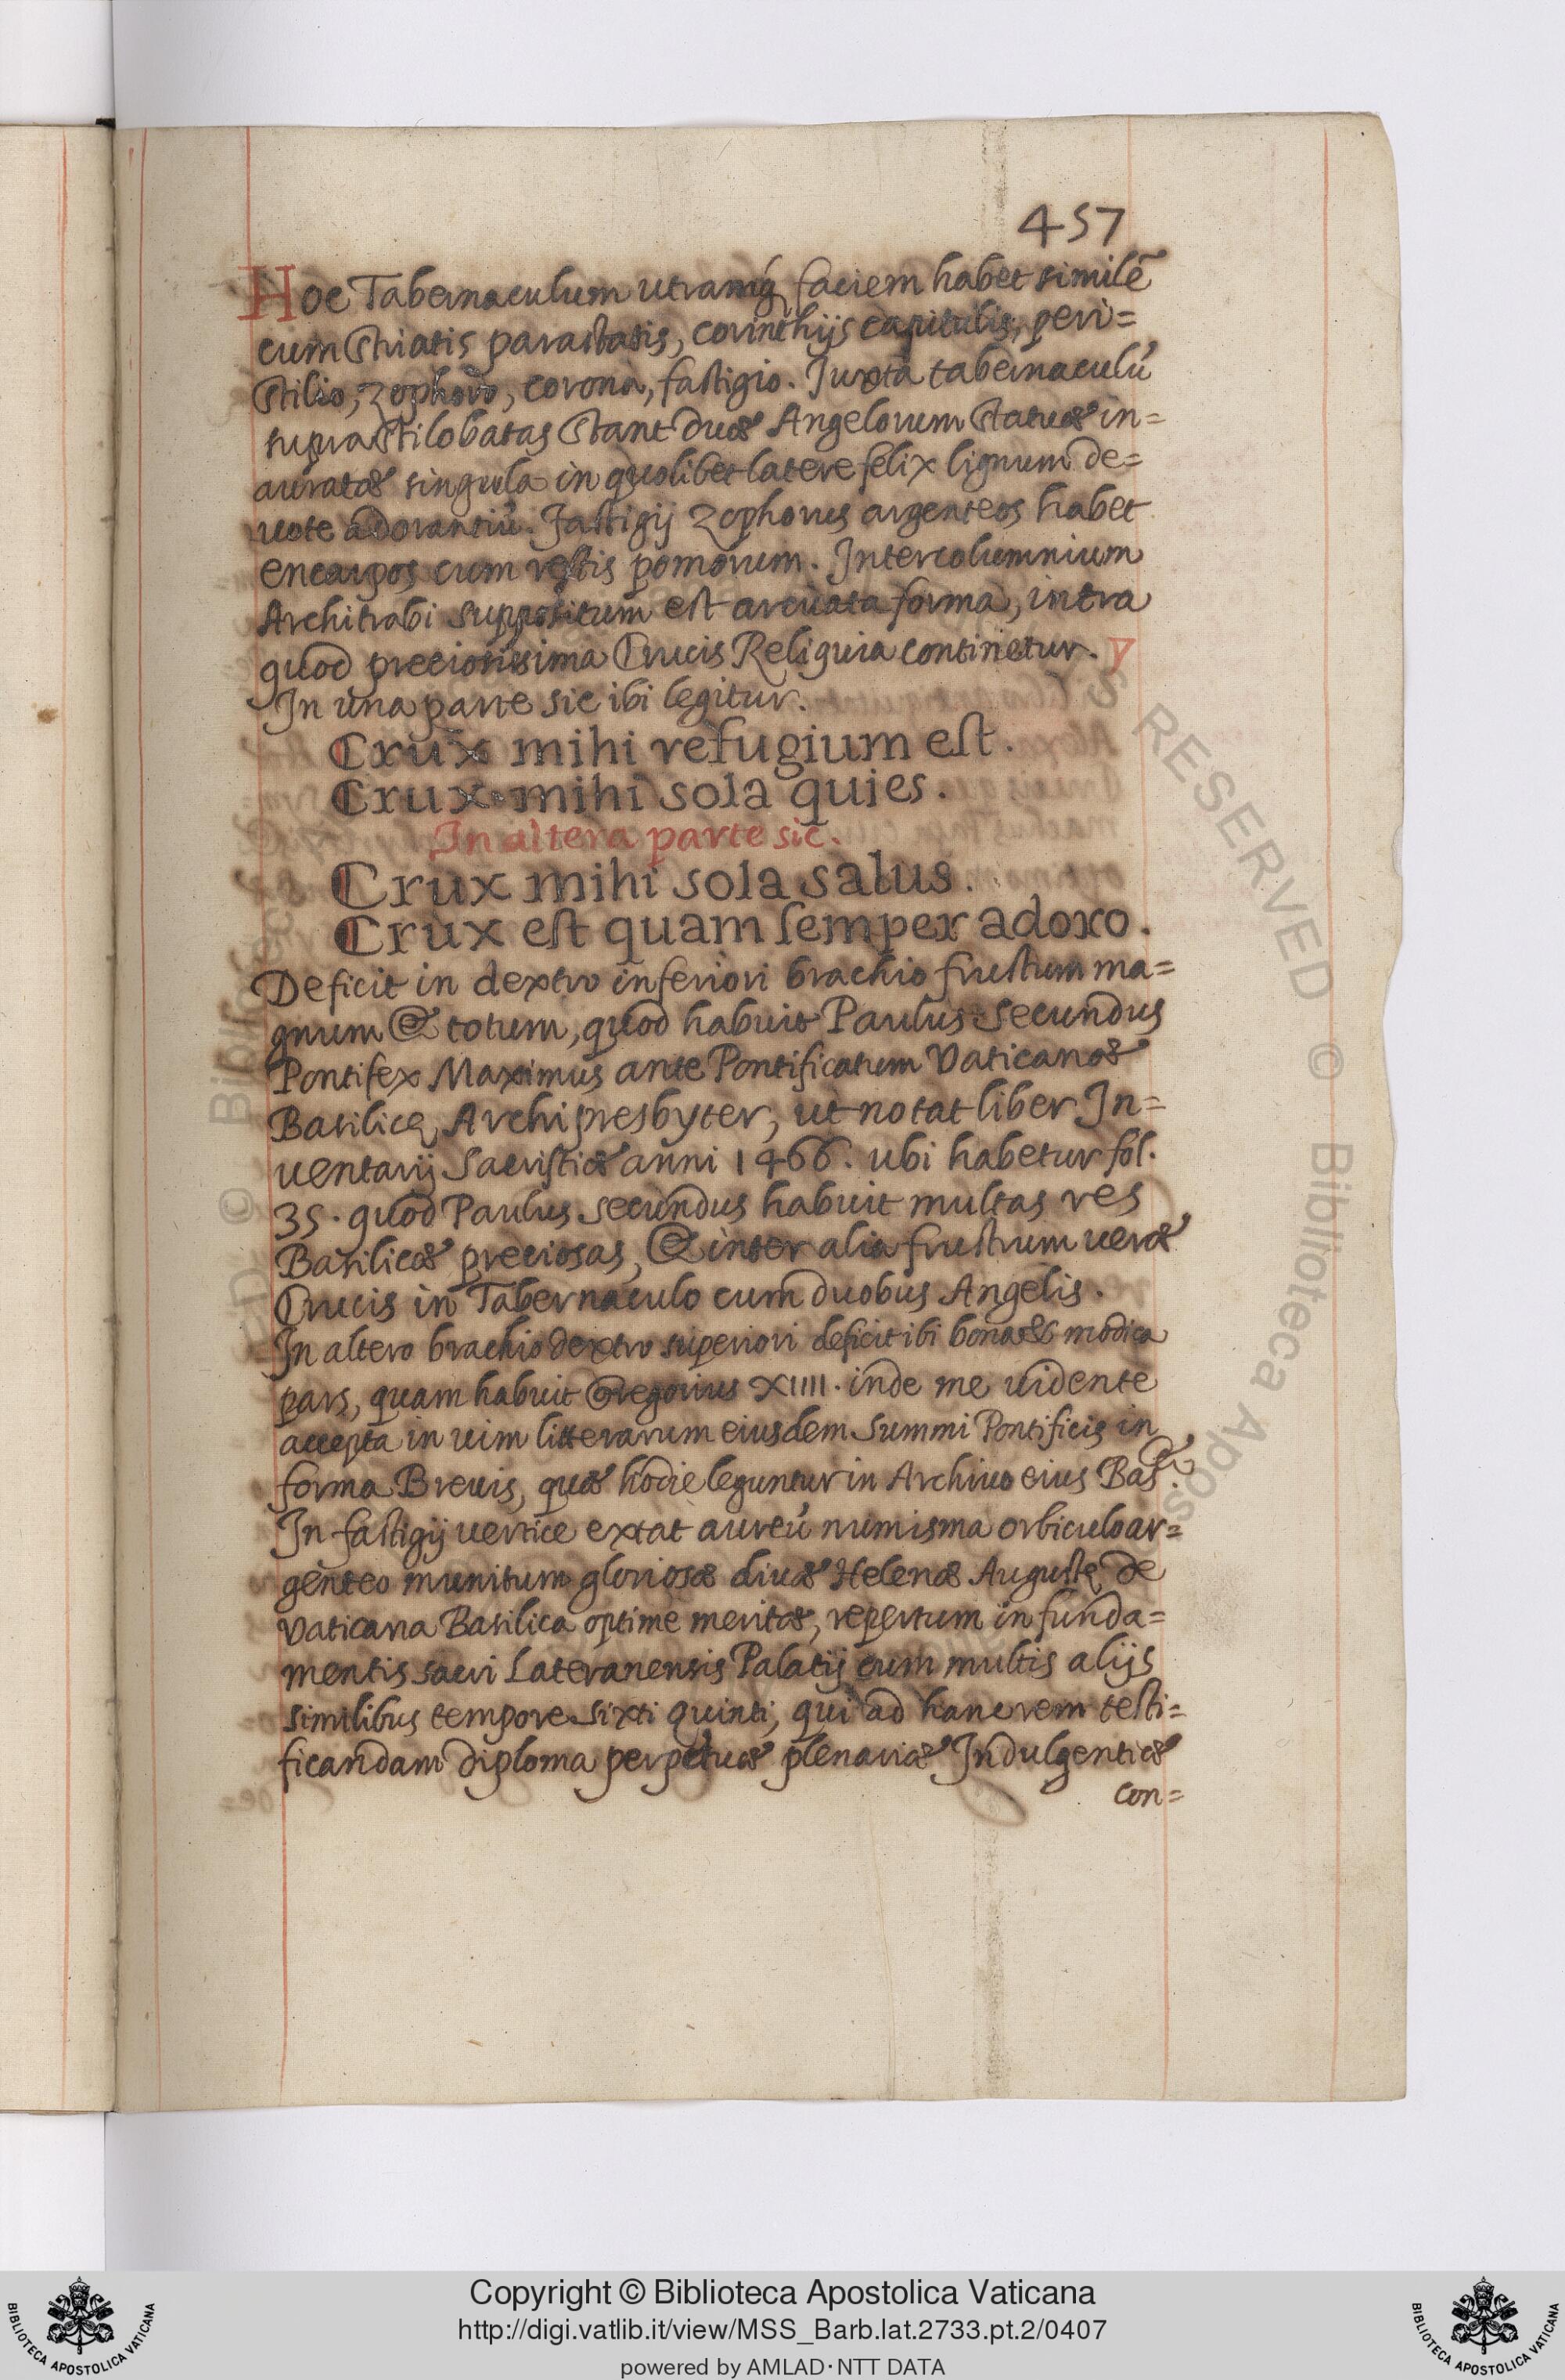 457
Hoc Tabernaculum utramq; faciem habet similẽ
cum striatis parastatis, corinthijs capitulis, peri=
stilio, zophoro, corona, fastigio. Juxta tabernaculũ
supra stilobatas stant duæ Angelorum statuæ in=
auratæ singula in quolibet latere felix lignum de=
uote adorantiũ. Fastigij zophorus argenteos habet
encarpos cum restis pomorum. Intercolumnium
Architrabi suppositum est arcuata forma, intra
quod preciosissima Crucis Reliquia continetur.
In una parte sic ibi legitur.
Crux mihi refugium est.
Crux mihi sola quies.
In altera parte sic.
Crux mihi sola salus.
Crux est quam semper adoro.
Deficit in dextro inferiori brachio frustum ma=
gnum & totum, quod habuit Paulus Secundus
Pontifex Maximus ante Pontificatum Vaticanæ
Basilicę Archipresbyter, ut notat liber In=
uentarij Sacristiæ anni 1466. ubi habetur fol.
35. quod Paulus Secundus habuit multas res
Basilicæ preciosas, & inter alia frustrum ueræ
Crucis in Tabernaculo cum duobus Angelis.
In altero brachio dextro superiori deficit ibi bona & modica
pars, quam habuit Gregorius XIIII. inde me uidente
accepta in uim litterarum eiusdem Summi Pontificis in
forma Breuis, quæ hodie leguntur in Archiuo eius Bas.cæ
In fastigij uertice extat aureũ numisma orbiculo ar=
genteo munitum gloriosæ diuæ Helenæ Augustę de
Vaticana Basilica optime meritæ, repertum in funda=
mentis sacri Lateranensis Palatij cum multis alijs
similibus tempore Sixti Quinti, qui ad hanc rem testi=
ficandam diploma perpetuæ plenariæ Indulgentiæ
con=
Copyright © Biblioteca Apostolica Vaticana
http://digi.vatlib.it/view/MSS_Barb.lat.2733.pt.2/0407
powered by AMLAD·NTT DATA
BIBLIOTECA APOSTOLICA VATICANA
BIBLIOTECA APOSTOLICA VATICANA